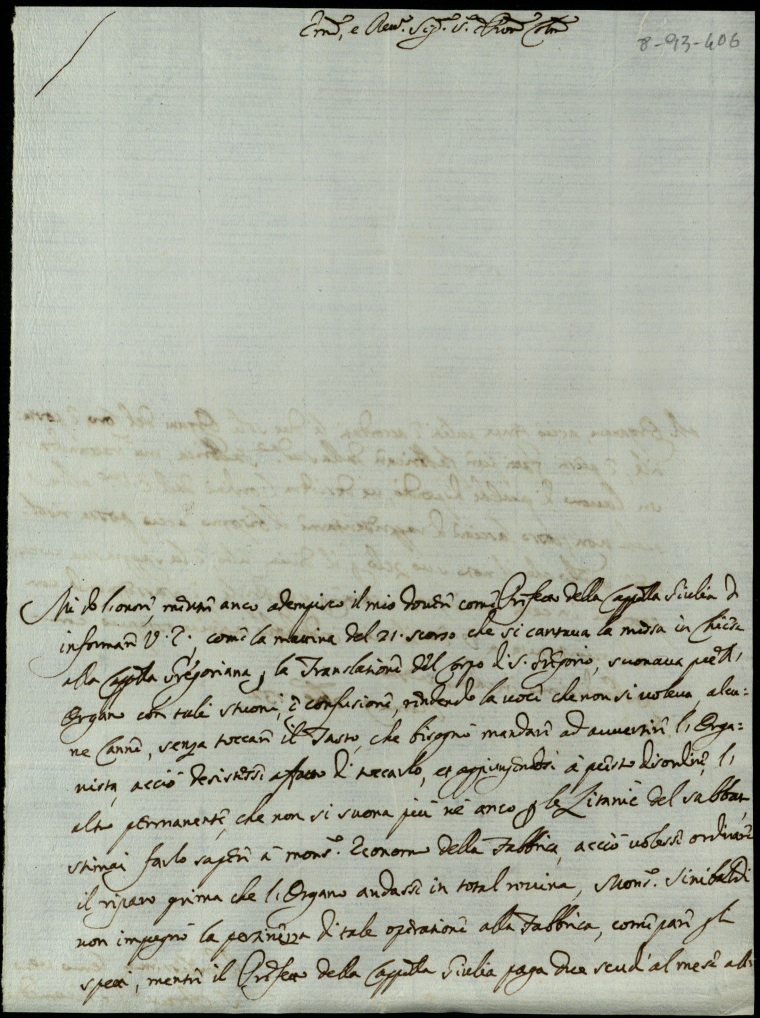 8-93-406
Mi do l'onore, mentre anco adempisco il mio dovere come Prefetto della Cappella Giulia di
informare V. E., come la mattina del 21. scorso che si cantava la messa in Chiesa
alla Cappella Gregoriana p la Translatione del Corpo di S. Gregorio, suonava quell'
Organo con tale e confusione, rendendo la voce che non si voleva, alcu=
ne Canne, senza toccare il Tasto, che bisognò mandare ad avvertire l'Orga=
nista, acciò desistesse affatto di toccarlo, et aggiungendosi à questo disordine l'
altro permanente, che non si suona più né anco p le Litanie del sabbato,
stimai farlo sapere à mons.r Economo della Fabbrica, acciò volesse ordinare
il riparo prima che l'Organo andasse in total rovina, Mons.r Sinibaldi
non impegnò la pertinenza di tale operatione alla Fabbrica, come pare gli
spetti, mentre il Prefetto della Cappella Giulia paga due scudi al mese